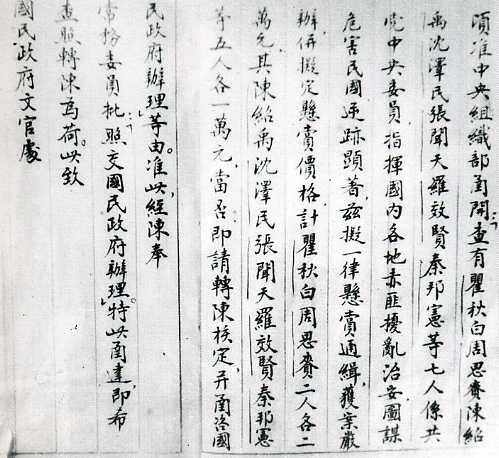 頃准中央組織部函開:「查有瞿秋白周恩賚陳紹
禹沈澤民張聞天羅效賢秦邦憲等七人係共
党中央委員,指揮國內各地赤匪擾亂治安圖謀
危害民國逆跡顯著茲擬一律懸賞通緝,獲案嚴
辦,併擬定懸賞價格計瞿秋白周恩賚二人各二
萬元,其陳紹禹沈澤民張聞天羅效賢秦邦憲
等五人各一萬元當否即請轉陳核定并函洛國
民政府辦理」等由。准此,經陳奉
常務委員批:「照交國民政府辦理。」特此函達,即希
查照轉陳為荷。此致
國民政府文官處